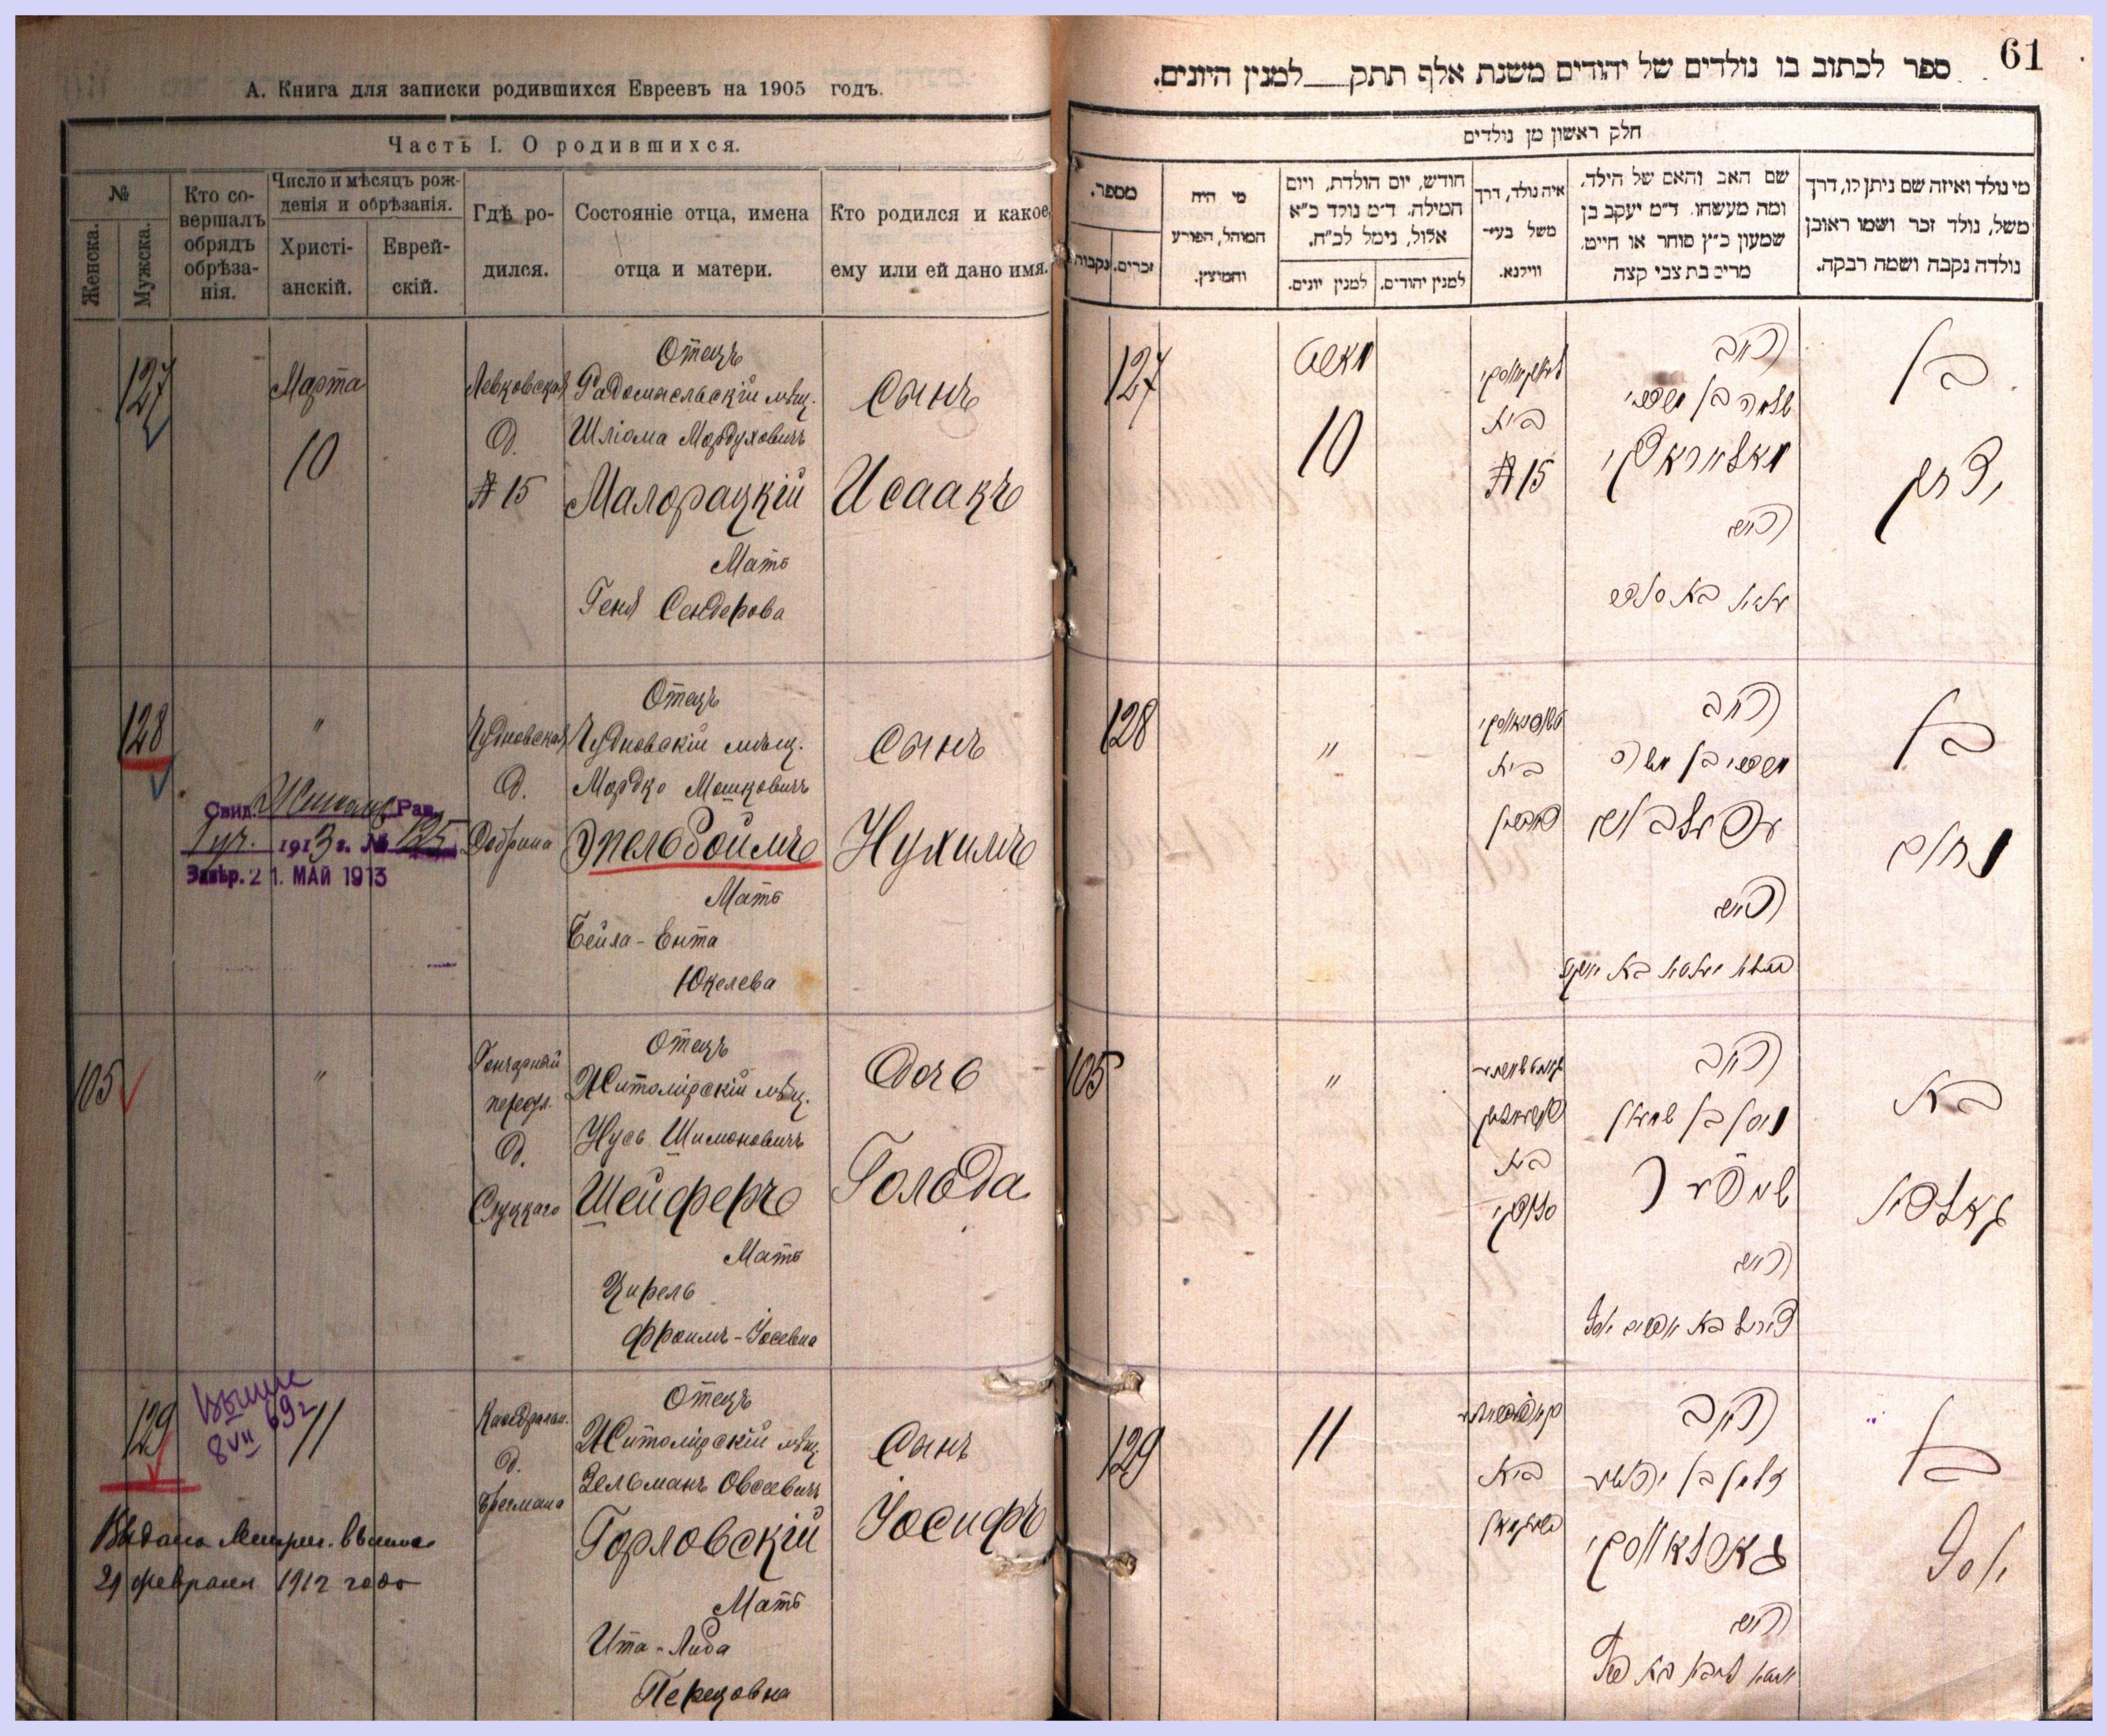 А. Книга для записки родившихся Евреевъ на 1905 годъ.
Часть I. О родившихся.
№
Женска.
Мужска.
Кто со-
вершалъ
обрядъ
обрѣза-
нія.
Число и мѣсяцъ рож-
денія и обрѣзанія.
Христі-
анскій.
Еврей-
скій.
Гдѣ ро-
дился.
Состояніе отца, имена
отца и матери.
Кто родился и какое
ему или ей дано имя.
127
Марта
10
Левковская
д.
№ 15
Отецъ
Радомысльскій мѣщ.
Шліома Мордуховичъ
Малорацкій
Мать
Геня Сендерова
сынъ
Исаакъ
128
"
Свид. Рав.
1913 г. № 125
Завѣр. 21. МАЙ 1913
Чудновская
д.
Добрина
Отецъ
Чудновскій мѣщ.
Мордко Мошковичъ
Эпельбоймъ
Мать
Бейла-Ента
Юкелева
сынъ
Нухимъ
105
"
Гончарный
переул.
д.
Слуцкаго
Отецъ
Житомірскій мѣщ.
Нусь Шимоновичъ
Шейферъ
Мать
Цирель
Фроимъ-Іосевна
Дочь
Гольда
129
11
Каѳедральн.
д.
Отецъ
Житомірскій мѣщ.
Зельманъ Овсеевичъ
Горловскій
Мать
Ита-Либа
Перецовна
сынъ
Іосифъ
Выдана Метрич. выпись
29 февраля 1912 года
61
ספר לכתוב בו נולדים של יהודים משנת אלף תתק למנין היונים.
חלק ראשון מן נולדים
מי נולד ואיזה שם ניתן לו, דרך
משל, נולד זכר ושמו ראובן
נולדה נקבה ושמה רבקה.
שם האב והאם של הילד,
ומה מעשהו. ד"מ יעקב בן
שמעון כ"ץ סוחר או חייט,
מרים בת צבי קצה
איה נולד, דרך
משל בעיר
ווילנא.
חודש, יום הולדת, ויום
המילה. ד"מ נולד כ"א
אלול, נימל לכ"ח.
למנין יהודים.
למנין יונים.
מי היה
המוהל, הפורע
והמוצץ.
מספר.
זכרים.
נקבות
בן
יצחק
האב
שלמה בן מרדכי
מאלאראצקי
האם
בית
№ 15
מארט
10
127
בן
נחום
האב
מרדכי בן משה
האם
בית
"
128
בת
גאלדא
האב
נוסן בן שמעון
שייפער
האם
"
105
בן
יוסף
האב
גארלאווסקי
האם
בית
11
129